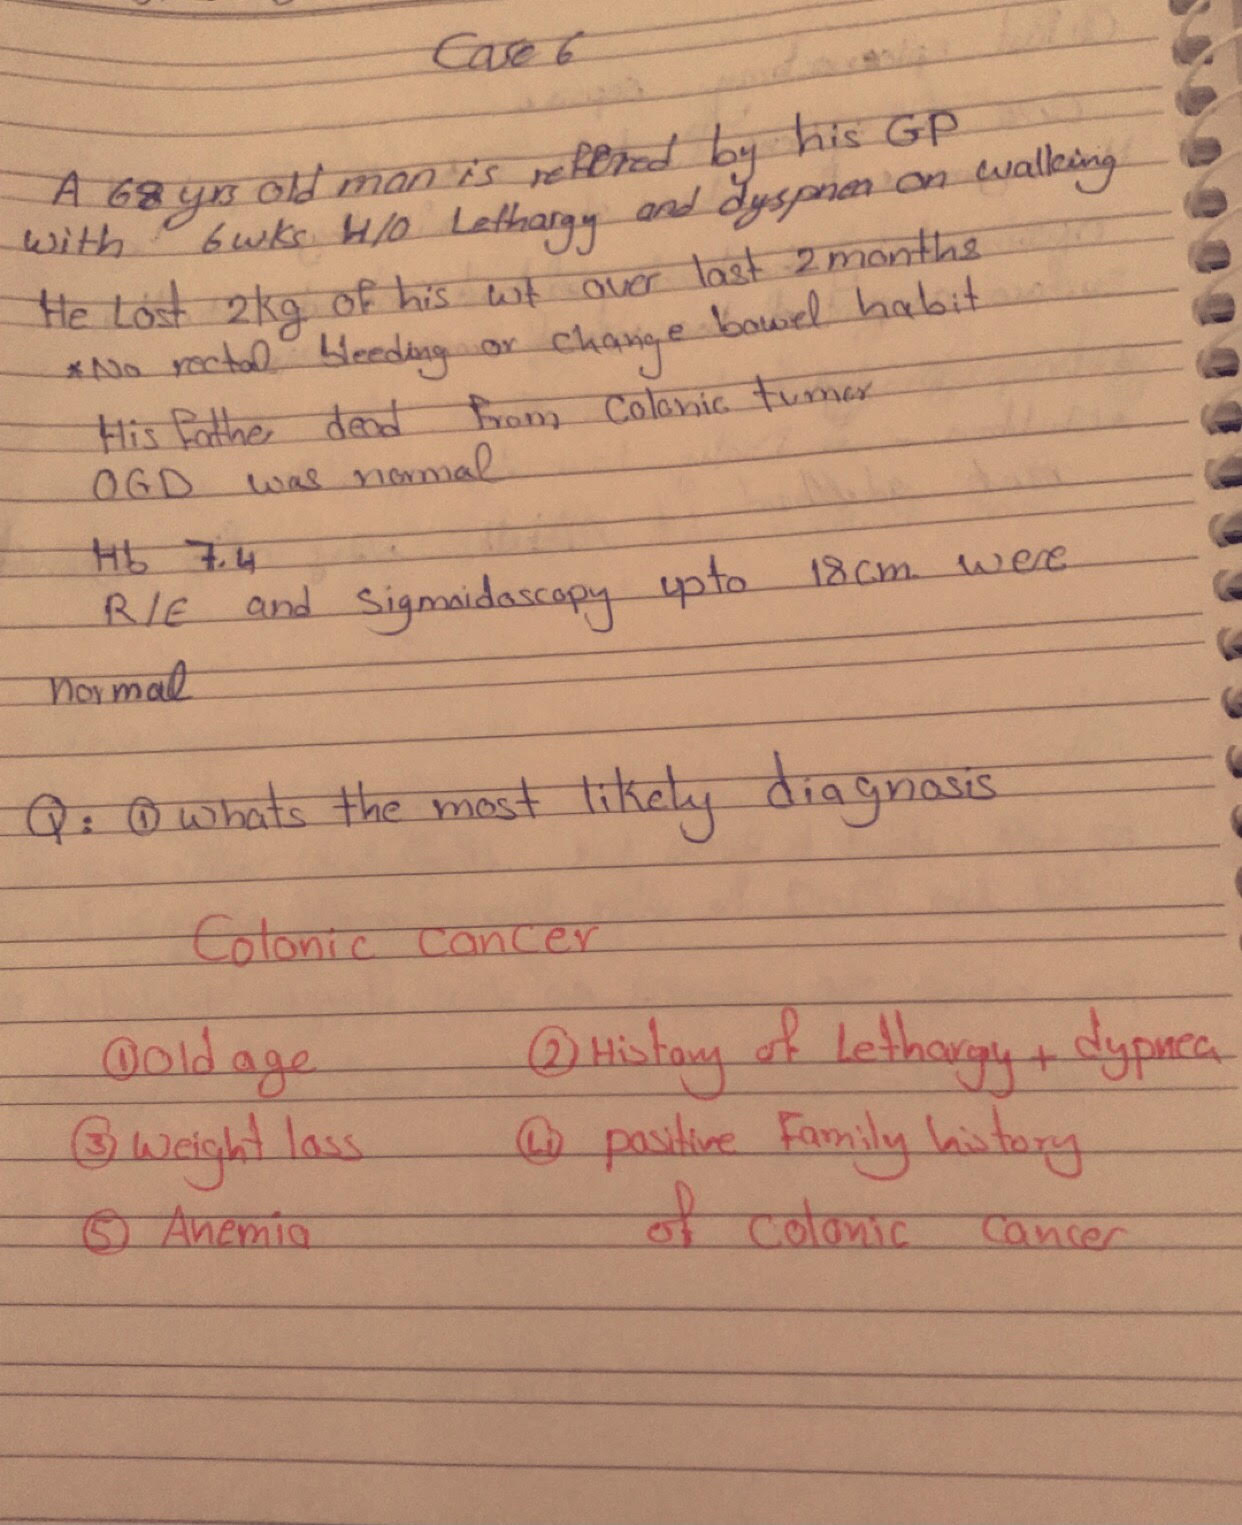 Case 6
A 68 yrs old man is reffered by his GP
with 6wks H/O Lethargy and dyspnea on walking
He Lost 2kg of his wt over last 2months
*No rectal bleeding or change bowel habit
His father dead from Colonic tumer
OGD was normal
Hb 7.4
R/E and sigmoidoscopy upto 18cm were
normal
Q: ① whats the most likely diagnosis
Colonic cancer
① Old age ② History of Lethargy + dypnea
③ Weight loss ④ positive Family history
⑤ Anemia of colonic cancer